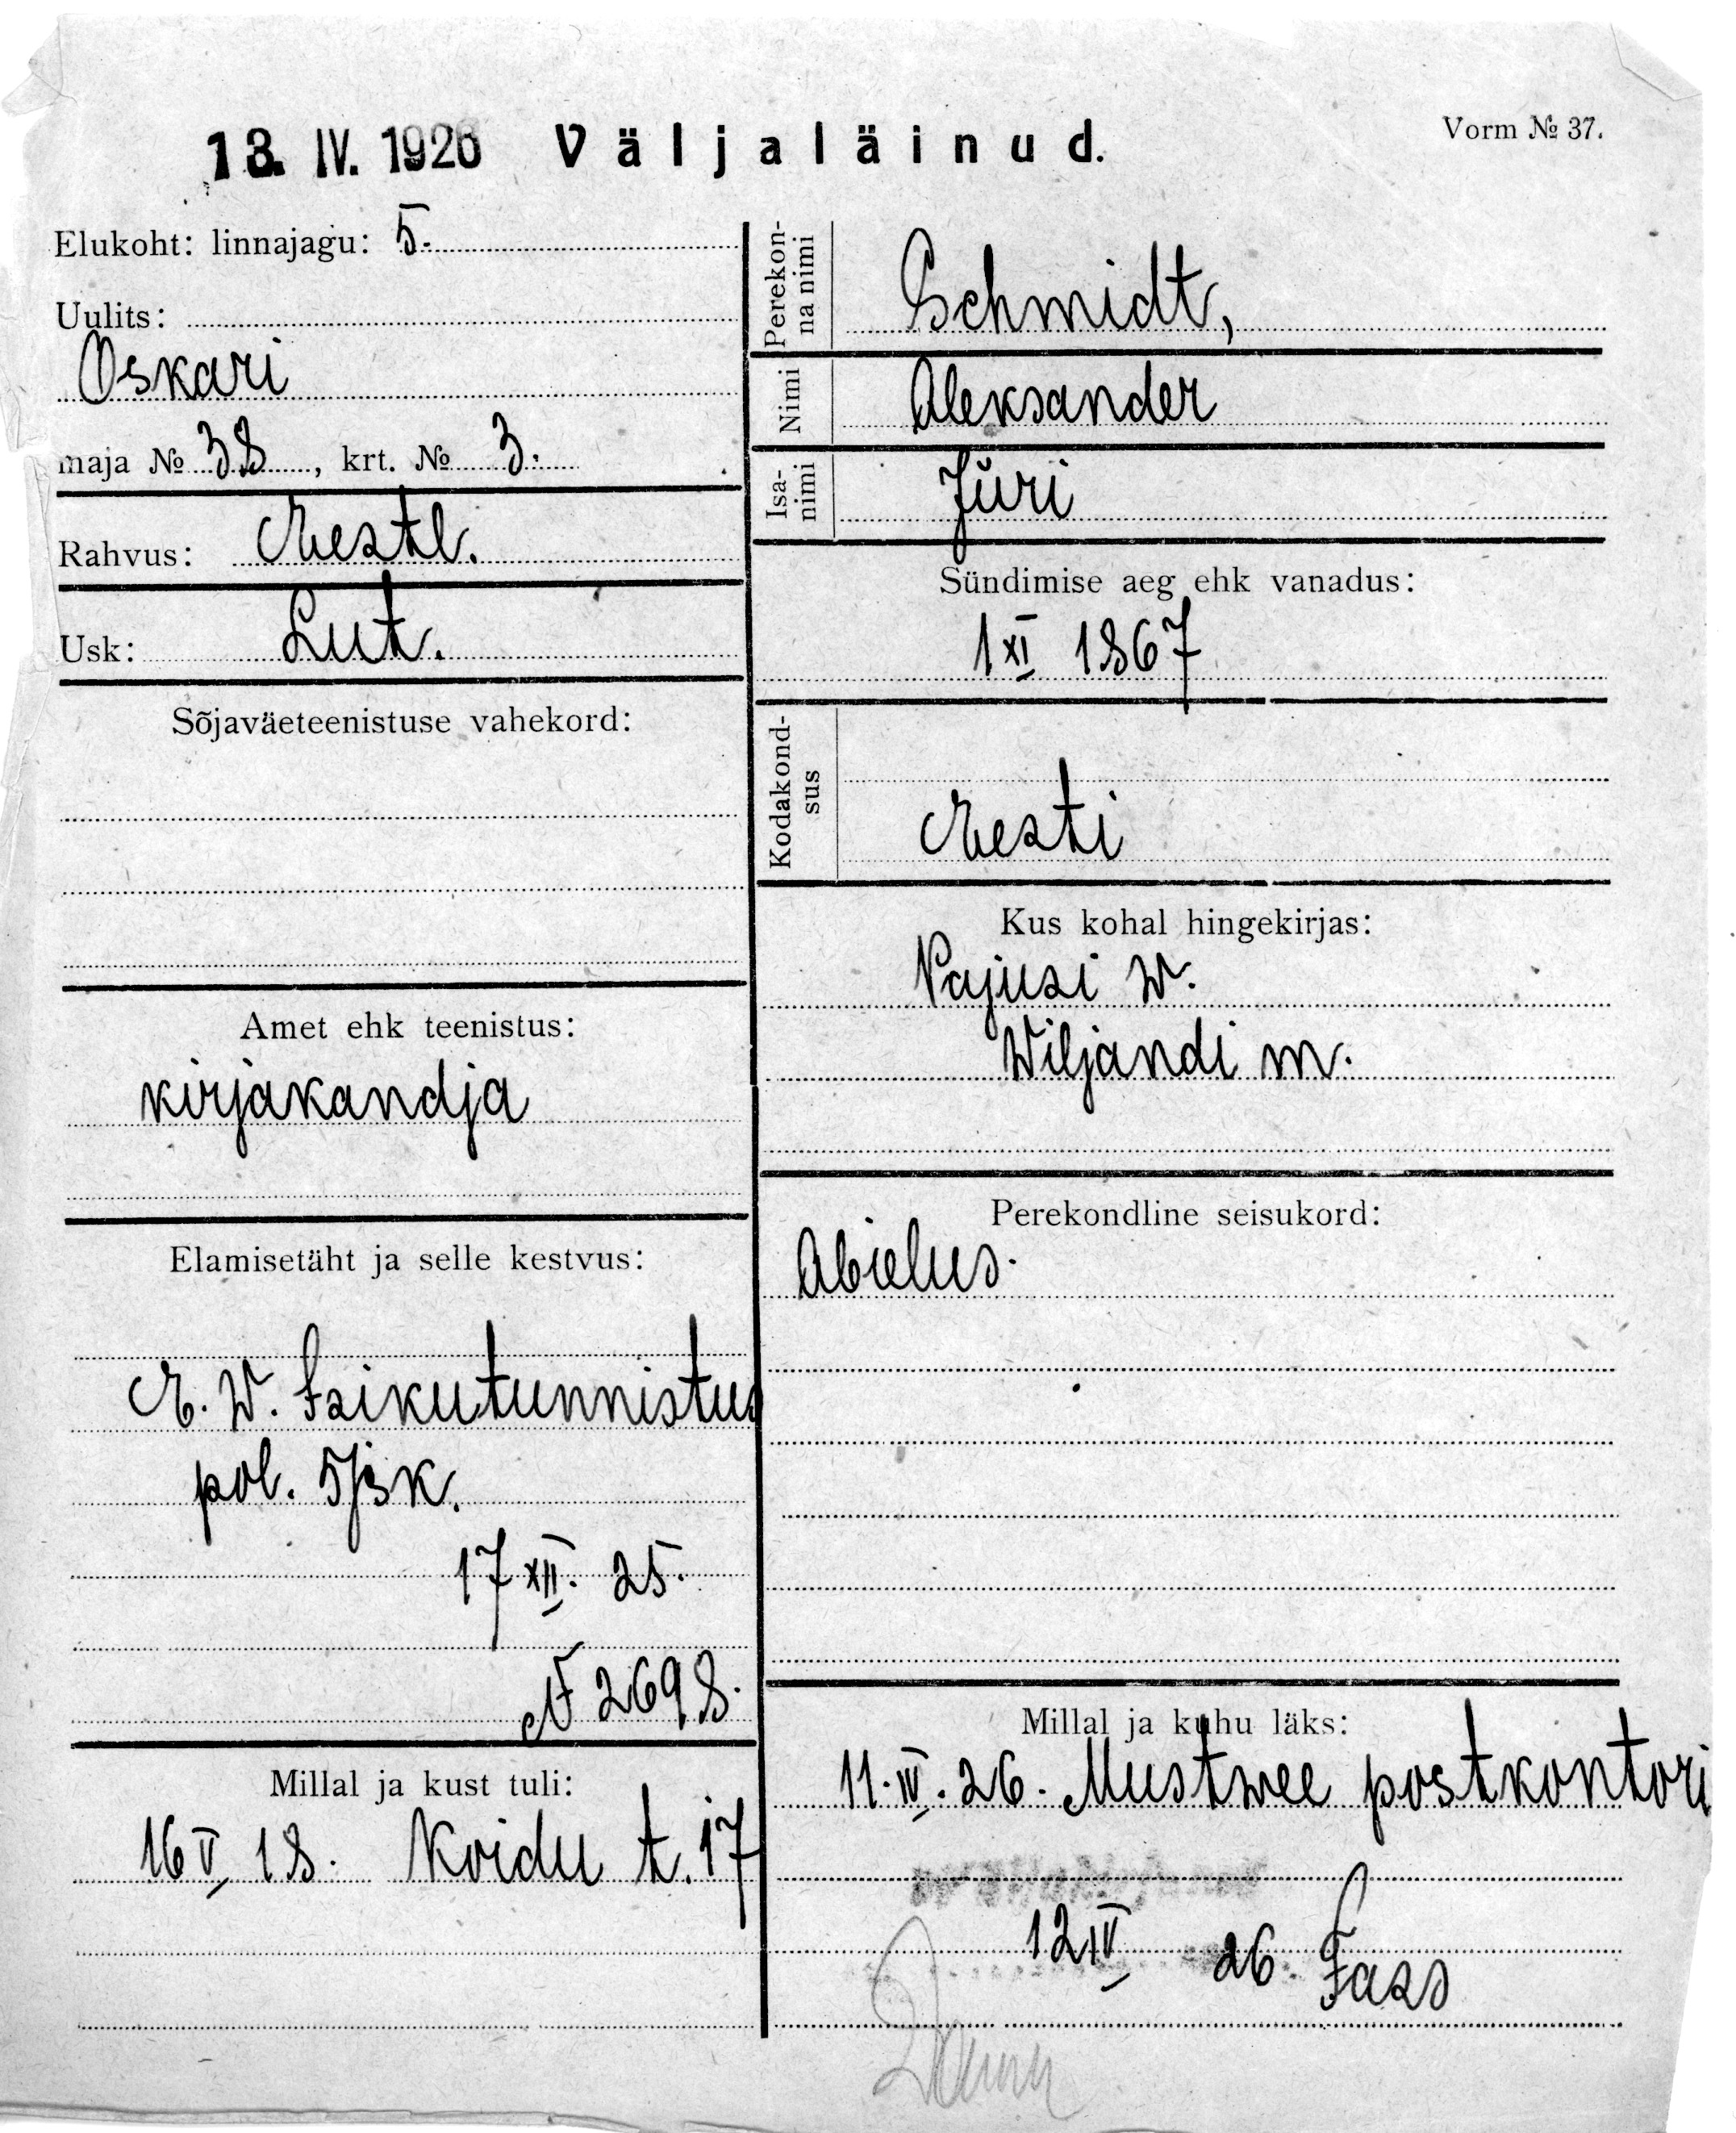 13. IV. 1926 Väljaläinud.
Vorm № 37.
Elukoht: linnajagu: 5.
Uulits:
Oskari
maja № 38, krt. № 3.
Rahvus: Eestl.
Usk: Lut.
Sõjaväeteenistuse vahekord:
Amet ehk teenistus:
kirjakandja
Elamisetäht ja selle kestvus:
E. W. Isikutunnistus
pol. 5 jsk.
17 XII. 25.
№ 2698.
Millal ja kust tuli:
16 V 18. Koidu t. 17
Perekon-
na nimi
Schmidt,
Nimi
Aleksander
Isa-
nimi
Jüri
Sündimise aeg ehk vanadus:
1 XI 1867
Kodakond-
sus
Eesti
Kus kohal hingekirjas:
Pajusi w.
Wiljandi m.
Perekondline seisukord:
Abielus.
Millal ja kuhu läks:
11. IV. 26. Mustwee postkontori
12 IV 26.